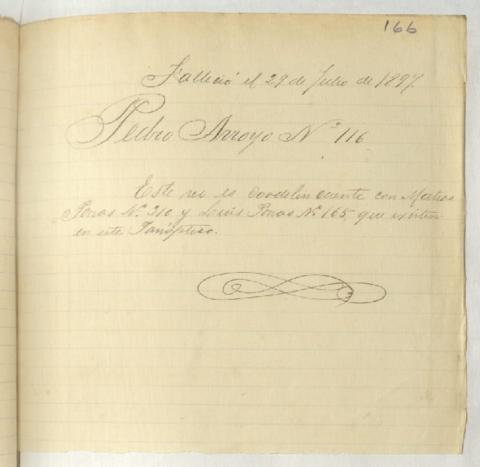 166
Falleció el 29 de Julio de 1897
Pedro Arroyo Nº 116
Este reo es codelincuente con Matias
Penas Nº 210 y Luis Penas Nº 165 que existen
en este Panóptico.